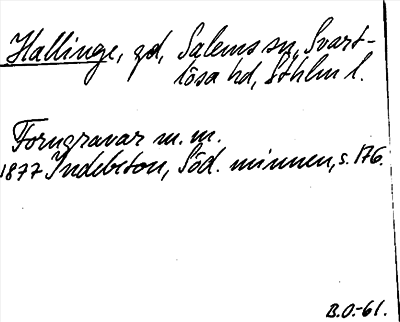 Hallinge, gd, Salems sn, Svart-
lösa hd, Sthlm l.
Forngravar m. m.
1877 Indebetou, Söd. minnen, s. 176.
B.O.-61.